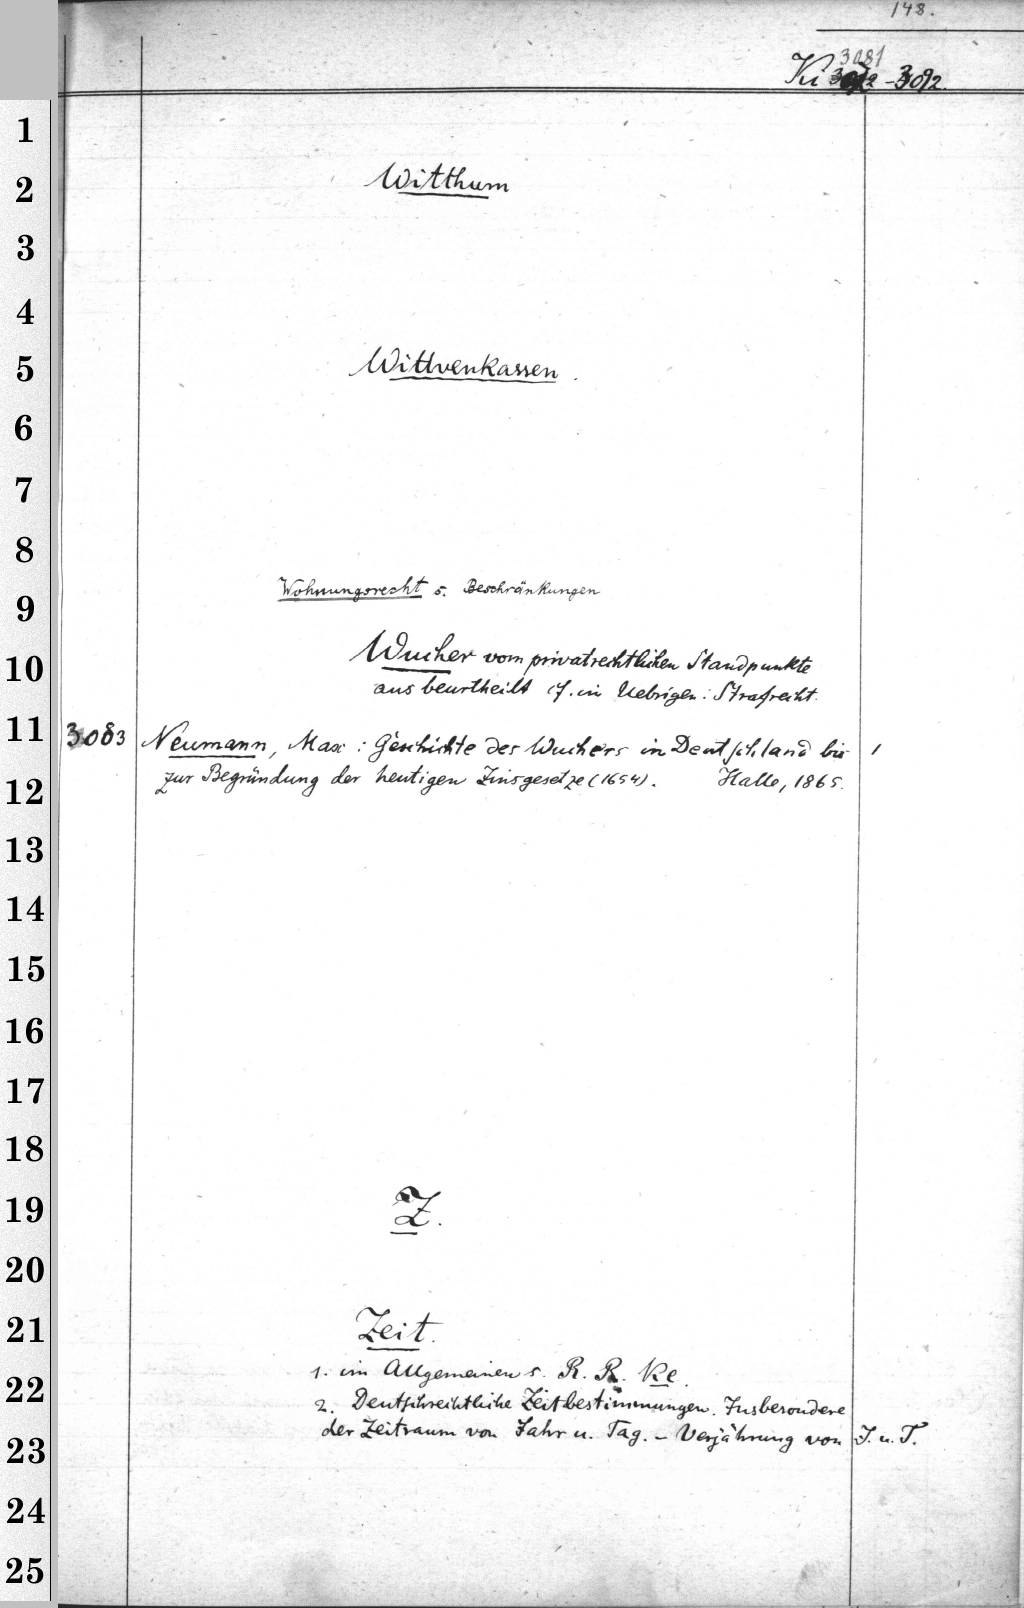 148.
3081
Ki - 3092.
1
2
Witthum
3
4
5
Wittwenkassen.
6
7
8
9
Wohnungsrecht s. Beschränkungen
10
Wucher vom privatrechtlichen Standpunkte
aus beurtheilt cf. im Uebrigen: Strafrecht.
11
3083 Neumann, Max: Geschichte des Wuchers in Deutschland bis 1
12
zur Begründung der heutigen Zinsgesetze (1654). Halle, 1865.
13
14
15
16
17
18
19
Z.
20
21
Zeit.
22
1. im Allgemeinen s. R. R. Ke.
2. Deutschrechtliche Zeitbestimmungen. Insbesondere
23
der Zeitraum von Jahr u. Tag. - Verjährung von J. u. T.
24
25